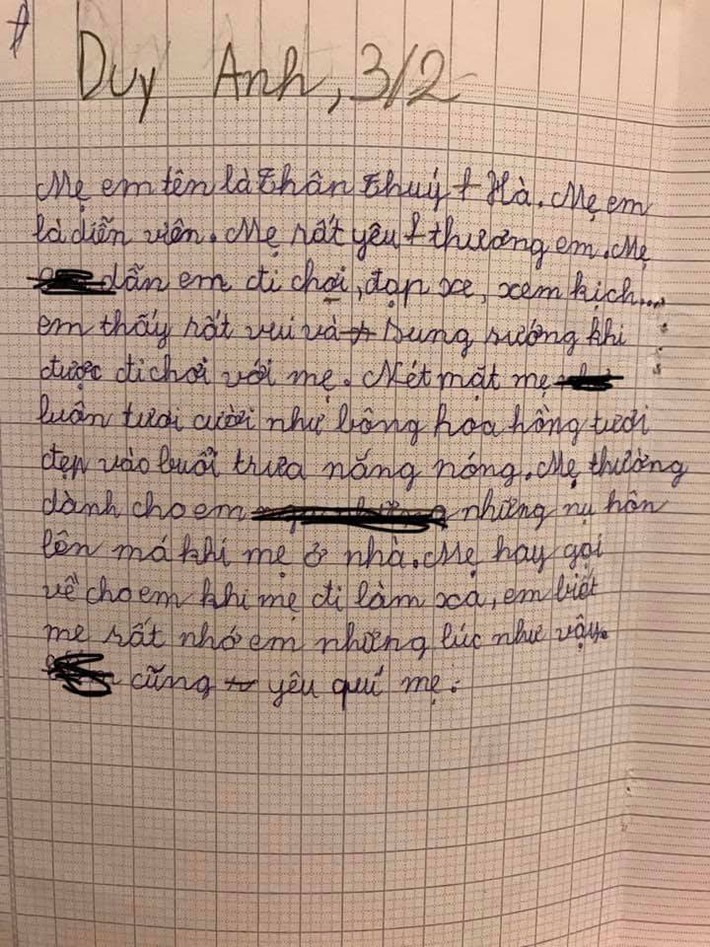 Duy Anh, 3/2
Mẹ em tên là Thân Thuý Hà. Mẹ em
là diễn viên. Mẹ rất yêu thương em. Mẹ
dẫn em đi chơi, đạp xe, xem kịch...
em thấy rất vui và sung sướng khi
được đi chơi với mẹ. Nét mặt mẹ
luôn tươi cười như bông hoa hồng tươi
đẹp vào buổi trưa nắng nóng. Mẹ thường
dành cho em những nụ hôn
lên má khi mẹ ở nhà. Mẹ hay gọi
về cho em khi mẹ đi làm xa, em biết
mẹ rất nhớ em những lúc như vậy.
cũng yêu quí mẹ.